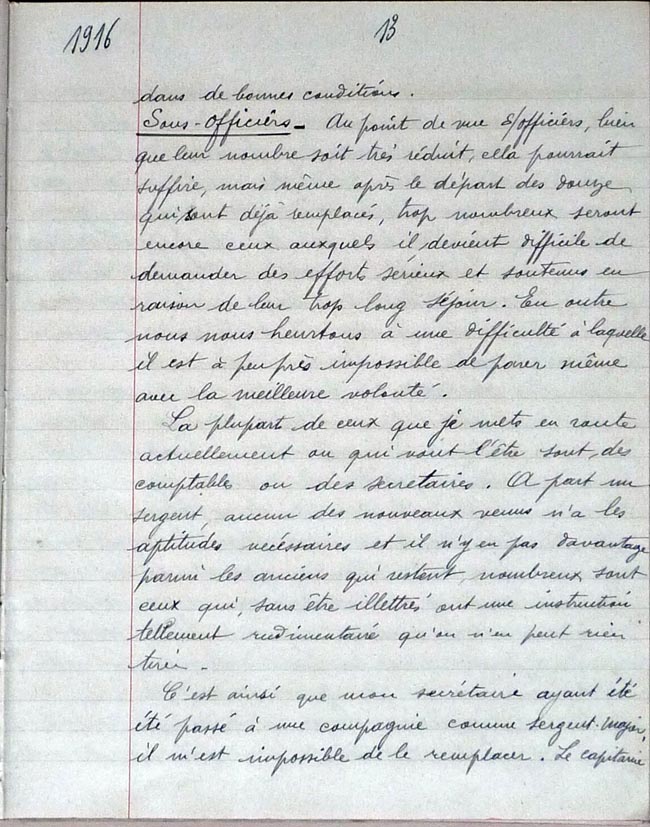 1916
13
dans de bonnes conditions.
Sous-Officiers - Au point de vue s/officiers, bien
que leur nombre soit très réduit, cela pourrait
suffire, mais même après le départ des douze
qui sont déjà remplacés, trop nombreux seront
encore ceux auxquels il devient difficile de
demander des efforts sérieux et soutenus en
raison de leur trop long séjour. En outre
nous nous heurtons à une difficulté à laquelle
il est à peu près impossible de parer même
avec la meilleure volonté.
La plupart de ceux que je mets en route
actuellement ou qui vont l'être sont, des
comptables ou des secrétaires. A part un
sergent, aucun des nouveaux venus n'a les
aptitudes nécessaires et il n'y en pas davantage
parmi les anciens qui restent, nombreux sont
ceux qui, sans être illettrés ont une instruction
tellement rudimentaire qu'on n'en peut rien
tirer.
C'est ainsi que mon secrétaire ayant été
été passé à une compagnie comme sergent-major,
il m'est impossible de le remplacer. Le capitaine